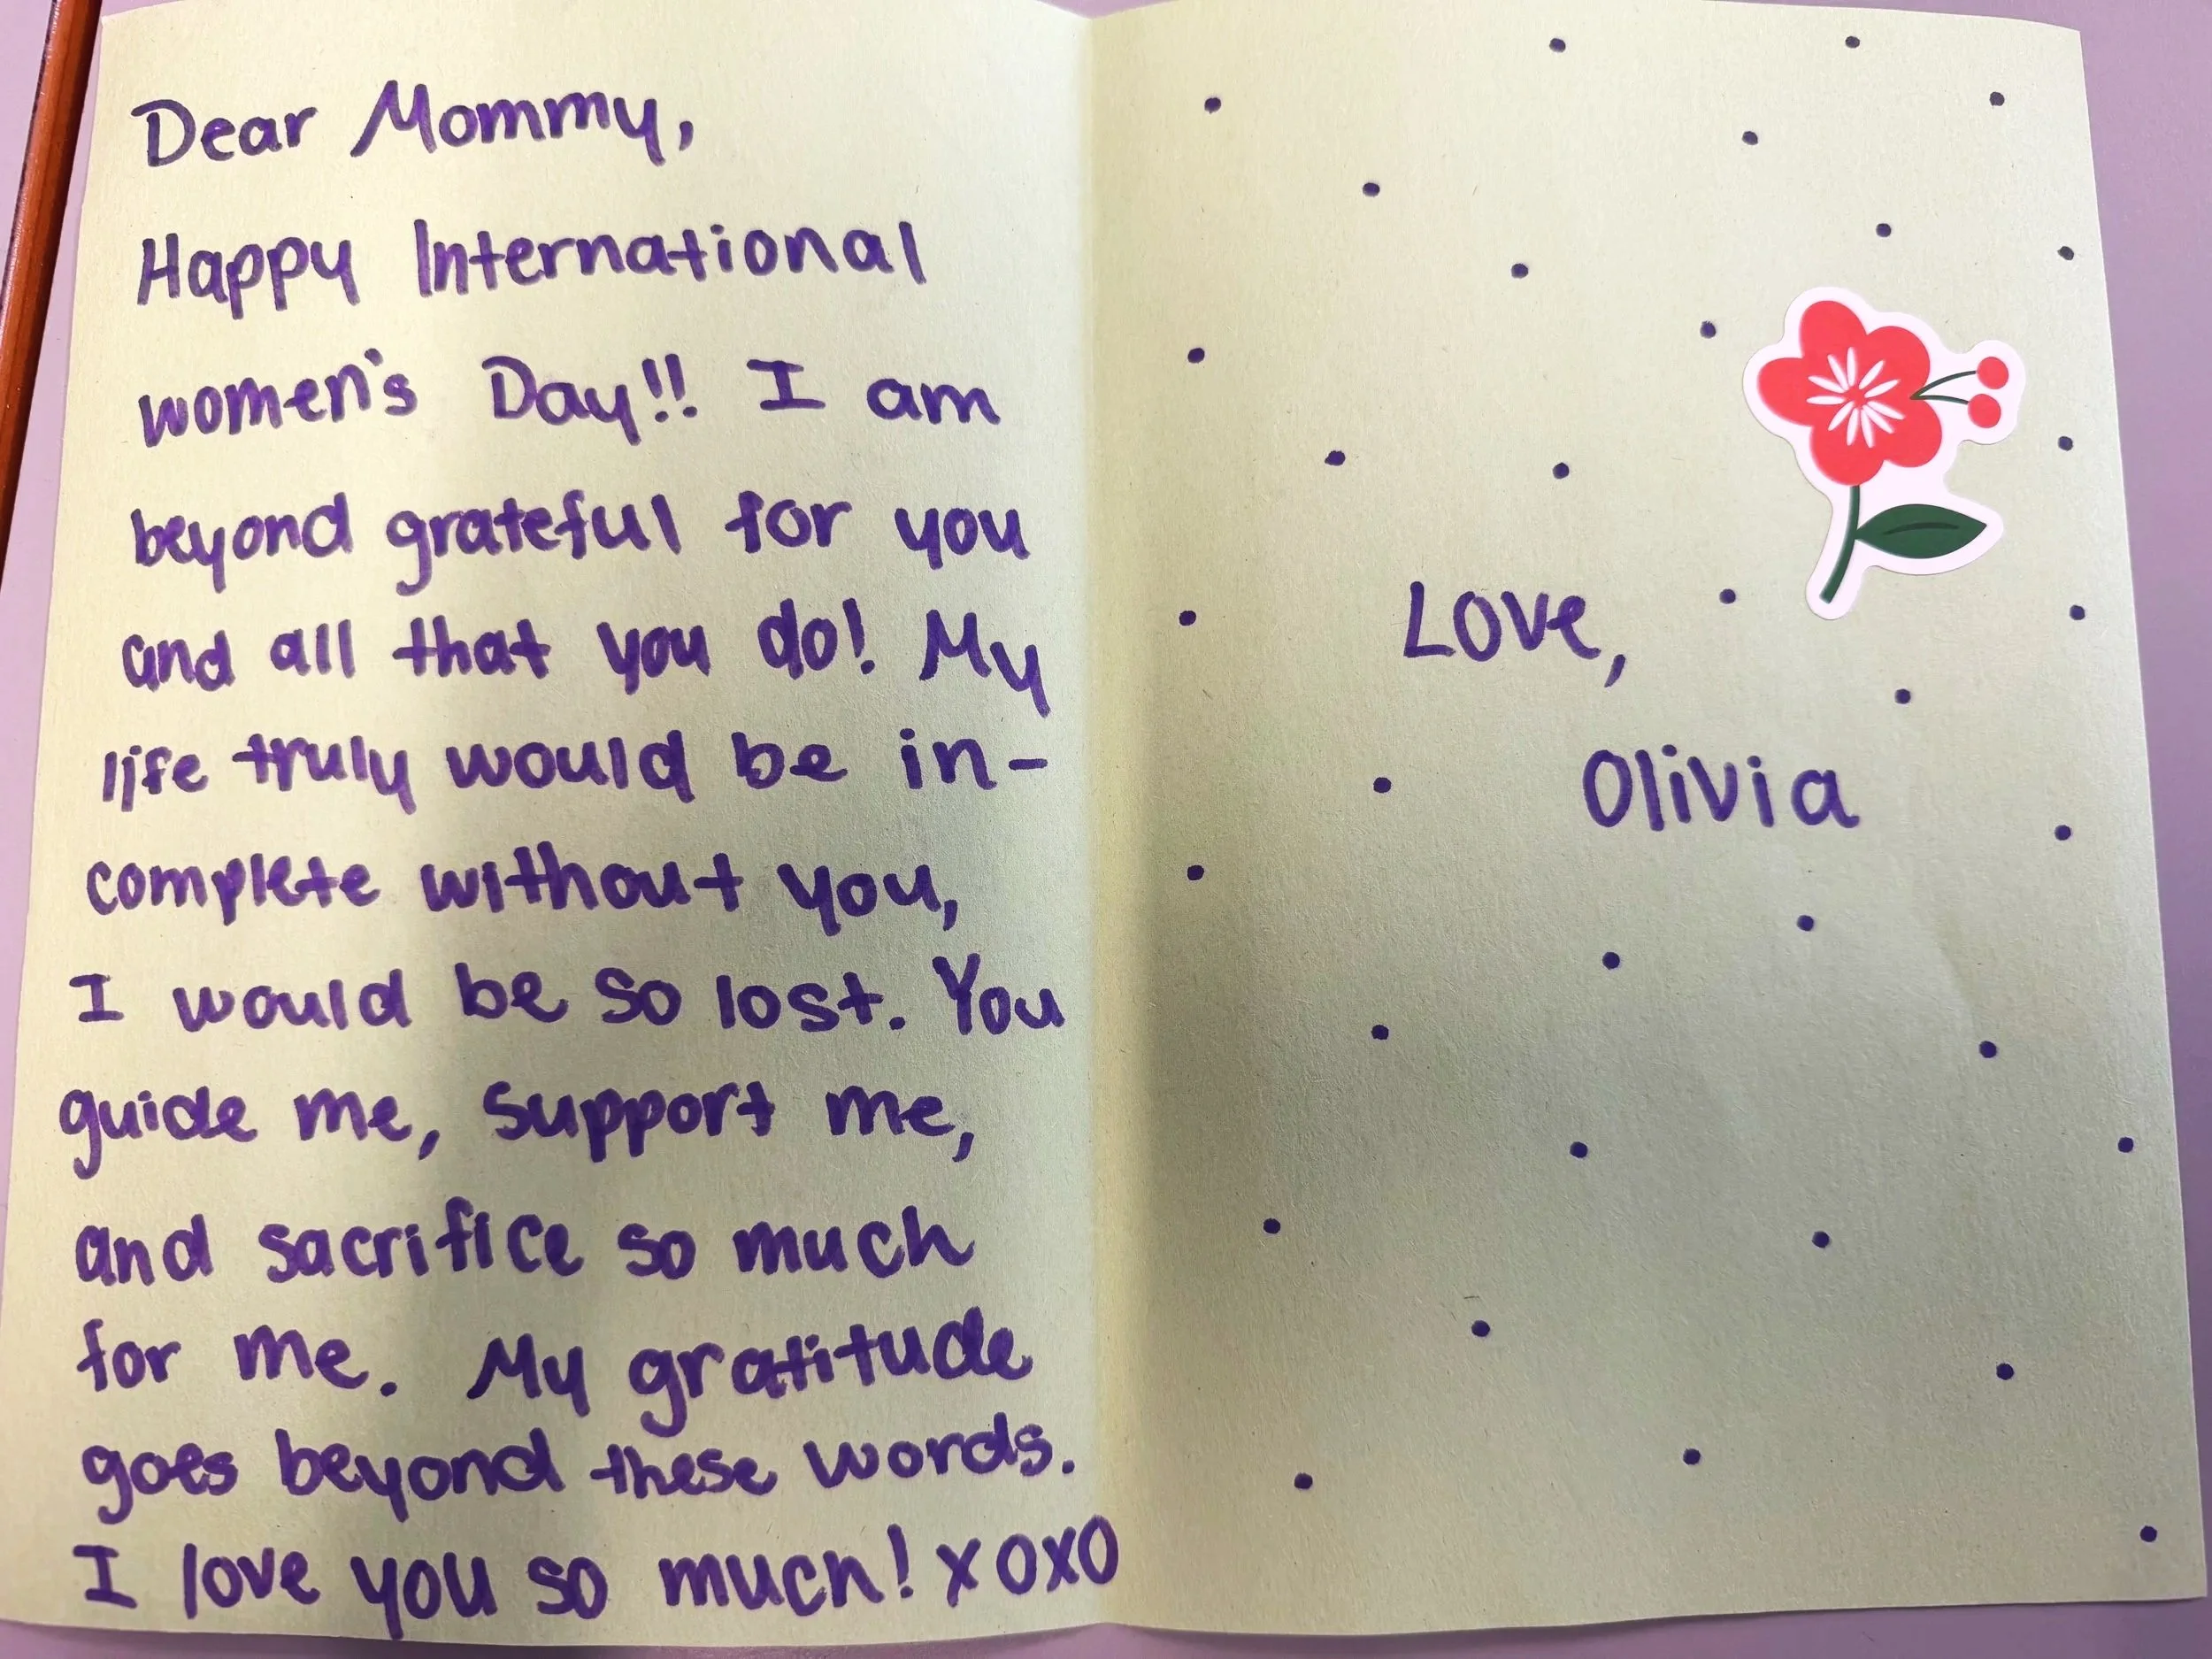 Dear Mommy,
Happy International
women's Day!! I am
beyond grateful for you
and all that you do! My
life truly would be in-
complete without you,
I would be so lost. You
guide me, support me,
and sacrifice so much
for me. My gratitude
goes beyond these words.
I love you so much! xoxo
Love,
Olivia